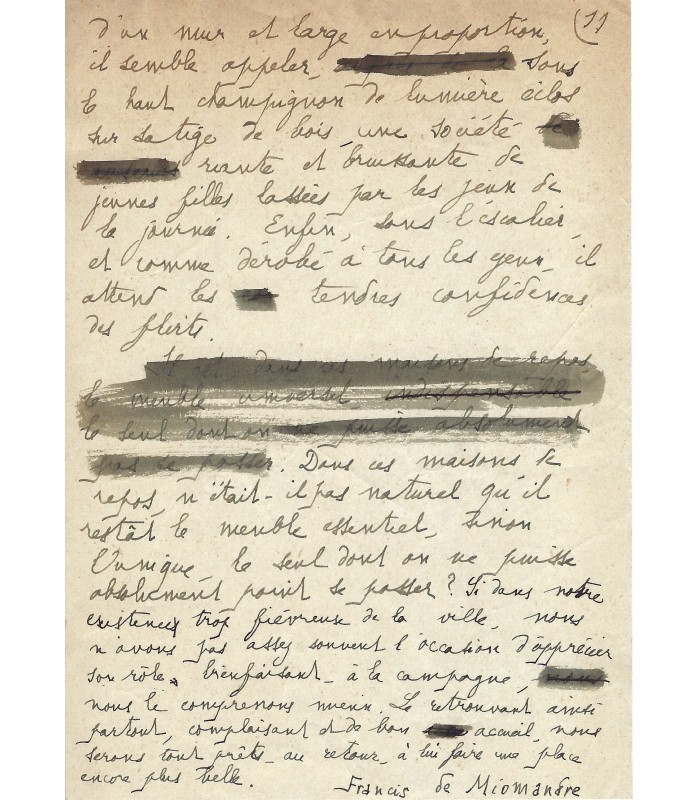 11
d'un mur et large en proportion,
il semble appeler, sous
le haut champignon de lumière éclos
sur sa tige de bois, une société de
riante et bruissante de
jeunes filles lassées par les jeux de
la journée. Enfin, sous l'escalier,
et comme dérobé à tous les yeux, il
attend les tendres confidences
des flirts.
Il est, dans ces maisons de repos,
le meuble universel indispensable
le seul dont on ne puisse absolument
pas se passer. Dans ces maisons de
repos, n'était-il pas naturel qu'il
restât le meuble essentiel, sinon
l'unique, le seul dont on ne puisse
absolument point se passer? Si dans notre
existence trop fiévreuse de la ville, nous
n'avons pas assez souvent l'occasion d'apprécier
son rôle bienfaisant - à la campagne, nous
nous le comprenons mieux. Le retrouvant ainsi
partout, complaisant et de bon accueil, nous
serons tout prêts - au retour - à lui faire une place
encore plus belle.
Francis de Miomandre